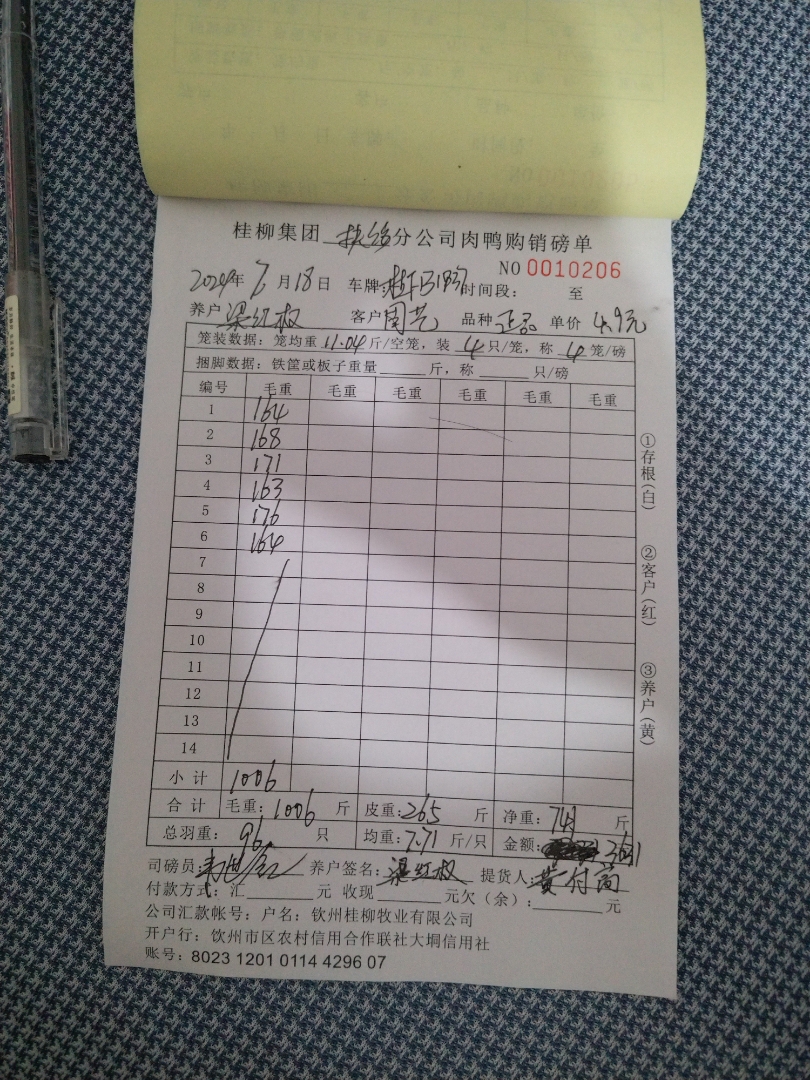 桂柳集团 分公司肉鸭购销磅单
NO 0010206
2024年7月18日 车牌: 时间段: 至
养户 梁红权 客户 周艺 品种 正品 单价 4.9元
笼装数据: 笼均重 11.04 斤/空笼, 装 4 只/笼, 称 4 笼/磅
捆脚数据: 铁筐或板子重量 斤, 称 只/磅
编号 毛重 毛重 毛重 毛重 毛重 毛重
1 164
2 168
3 171
4 163
5 176
6 164
7
8
9
10
11
12
13
14
小计 1006
合计 毛重: 1006 斤 皮重: 265 斤 净重: 741 斤
总羽重: 96 只 均重: 7.71 斤/只 金额: 3631
司磅员: 养户签名: 梁红权 提货人: 黄付高
付款方式: 汇 元 收现 元欠(余): 元
公司汇款帐号: 户名: 钦州桂柳牧业有限公司
开户行: 钦州市区农村信用合作联社大垌信用社
账号: 8023 1201 0114 4296 07
①存根(白)
②客户(红)
③养户(黄)